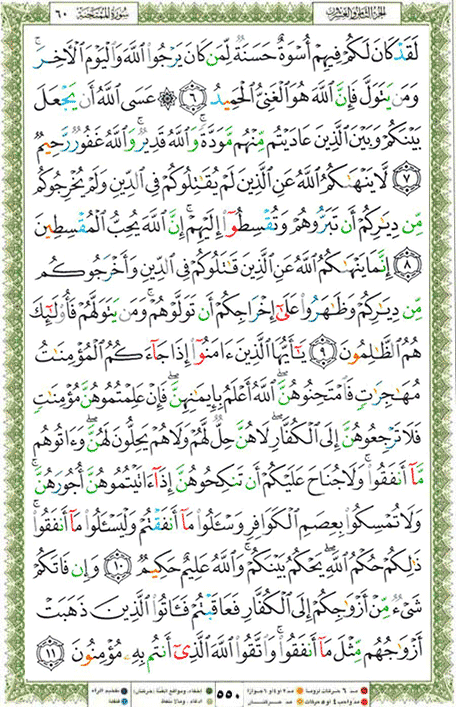 الجزء الثامن والعشرون
سورة الممتحنة ٦٠
لَقَدْ كَانَ لَكُمْ فِيهِمْ أُسْوَةٌ حَسَنَةٌ لِّمَن كَانَ يَرْجُوا۟ ٱللَّهَ وَٱلْيَوْمَ ٱلْـَٔاخِرَ ۚ
وَمَن يَتَوَلَّ فَإِنَّ ٱللَّهَ هُوَ ٱلْغَنِىُّ ٱلْحَمِيدُ ٦ ۞ عَسَى ٱللَّهُ أَن يَجْعَلَ
بَيْنَكُمْ وَبَيْنَ ٱلَّذِينَ عَادَيْتُم مِّنْهُم مَّوَدَّةً ۚ وَٱللَّهُ قَدِيرٌ ۚ وَٱللَّهُ غَفُورٌ رَّحِيمٌ
٧ لَّا يَنْهَىٰكُمُ ٱللَّهُ عَنِ ٱلَّذِينَ لَمْ يُقَـٰتِلُوكُمْ فِى ٱلدِّينِ وَلَمْ يُخْرِجُوكُم
مِّن دِيَـٰرِكُمْ أَن تَبَرُّوهُمْ وَتُقْسِطُوٓا۟ إِلَيْهِمْ ۚ إِنَّ ٱللَّهَ يُحِبُّ ٱلْمُقْسِطِينَ
٨ إِنَّمَا يَنْهَىٰكُمُ ٱللَّهُ عَنِ ٱلَّذِينَ قَـٰتَلُوكُمْ فِى ٱلدِّينِ وَأَخْرَجُوكُم
مِّن دِيَـٰرِكُمْ وَظَـٰهَرُوا۟ عَلَىٰٓ إِخْرَاجِكُمْ أَن تَوَلَّوْهُمْ ۚ وَمَن يَتَوَلَّهُمْ فَأُو۟لَـٰٓئِكَ
هُمُ ٱلظَّـٰلِمُونَ ٩ يَـٰٓأَيُّهَا ٱلَّذِينَ ءَامَنُوٓا۟ إِذَا جَآءَكُمُ ٱلْمُؤْمِنَـٰتُ
مُهَـٰجِرَٰتٍ فَٱمْتَحِنُوهُنَّ ۖ ٱللَّهُ أَعْلَمُ بِإِيمَـٰنِهِنَّ ۖ فَإِنْ عَلِمْتُمُوهُنَّ مُؤْمِنَـٰتٍ
فَلَا تَرْجِعُوهُنَّ إِلَى ٱلْكُفَّارِ ۖ لَا هُنَّ حِلٌّ لَّهُمْ وَلَا هُمْ يَحِلُّونَ لَهُنَّ ۖ وَءَاتُوهُم
مَّآ أَنفَقُوا۟ ۚ وَلَا جُنَاحَ عَلَيْكُمْ أَن تَنكِحُوهُنَّ إِذَآ ءَاتَيْتُمُوهُنَّ أُجُورَهُنَّ ۚ
وَلَا تُمْسِكُوا۟ بِعِصَمِ ٱلْكَوَافِرِ وَسْـَٔلُوا۟ مَآ أَنفَقْتُمْ وَلْيَسْـَٔلُوا۟ مَآ أَنفَقُوا۟ ۚ
ذَٰلِكُمْ حُكْمُ ٱللَّهِ ۖ يَحْكُمُ بَيْنَكُمْ ۚ وَٱللَّهُ عَلِيمٌ حَكِيمٌ ١٠ وَإِن فَاتَكُمْ
شَىْءٌ مِّنْ أَزْوَٰجِكُمْ إِلَى ٱلْكُفَّارِ فَعَاقَبْتُمْ فَـَٔاتُوا۟ ٱلَّذِينَ ذَهَبَتْ
أَزْوَٰجُهُم مِّثْلَ مَآ أَنفَقُوا۟ ۚ وَٱتَّقُوا۟ ٱللَّهَ ٱلَّذِىٓ أَنتُم بِهِۦ مُؤْمِنُونَ ١١
٥٥٠